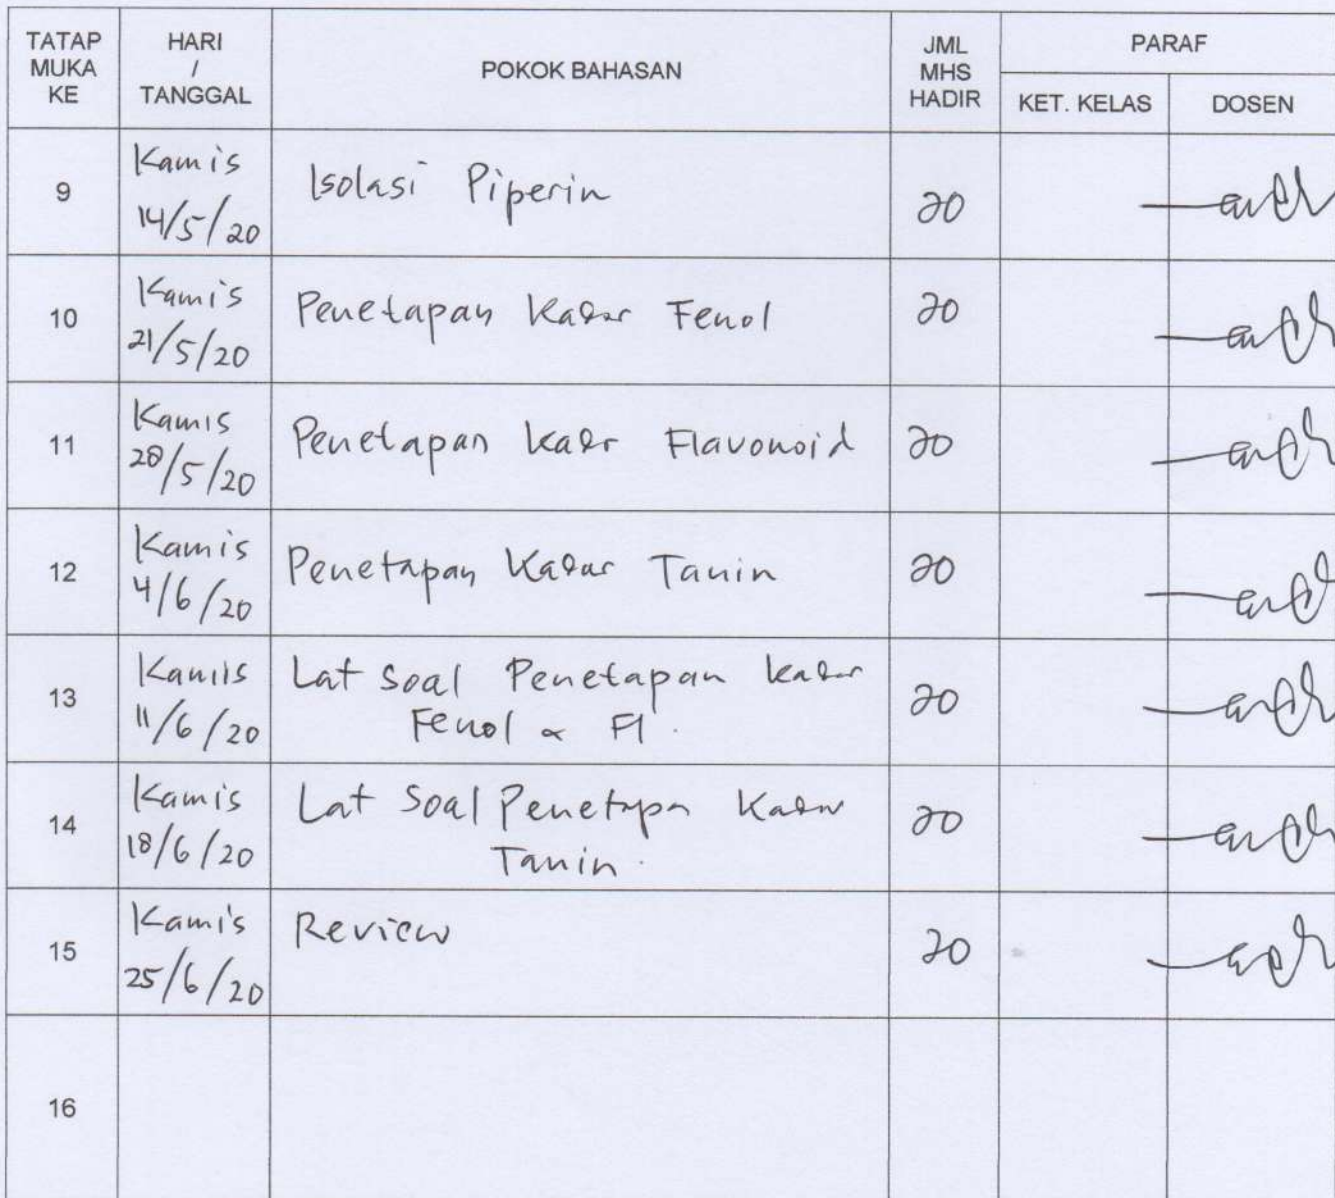 TATAP MUKA KE HARI / TANGGAL POKOK BAHASAN JML MHS HADIR PARAF
KET. KELAS DOSEN
9 Kamis 14/5/20 Isolasi Piperin 20
10 Kamis 21/5/20 Penetapan Kadar Fenol 20
11 Kamis 28/5/20 Penetapan kadr Flavonoid 20
12 Kamis 4/6/20 Penetapan Kadar Tanin 20
13 Kamis 11/6/20 Lat Soal Penetapan kadar
Fenol & Fl. 20
14 Kamis 18/6/20 Lat Soal Penetapn Kadar
Tanin. 20
15 Kamis 25/6/20 Review 20
16